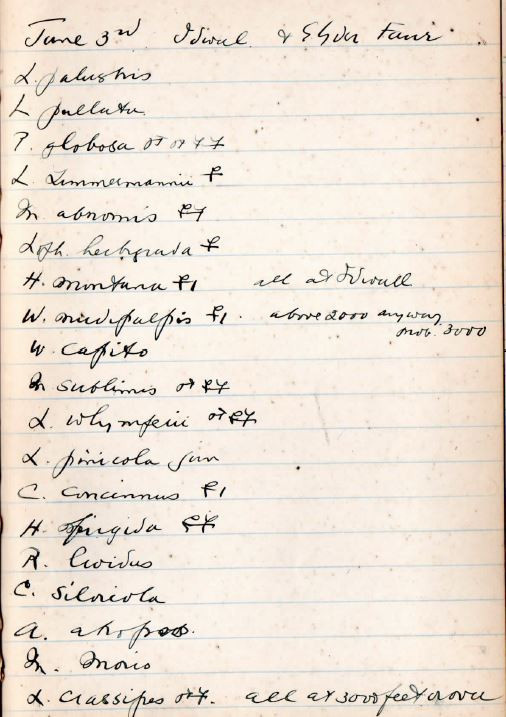 June 3rd Idwal & Glyder Fawr.
L. palustris
L. pullata
P. globosa ♂♂ ♂♂ ♀♀
L. Zimmermannii ♀
M. abnomis ♀♀
Loph. herbigrada ♀
H. montana ♀1 all at Idwall
W. nudipalpis ♀1. above 2000 anyway
prob. 3000
W. capito
M sublimis ♂♂ ♀♀
L. whymperii ♂♂ ♀♀
L. pinicola juv
C. concinnus ♀1
H frigida ♀♀
R. lividus
C. silvicola
A. atropos.
M.
L. crassipes ♂♂ ♀. all at 3000 feet or over